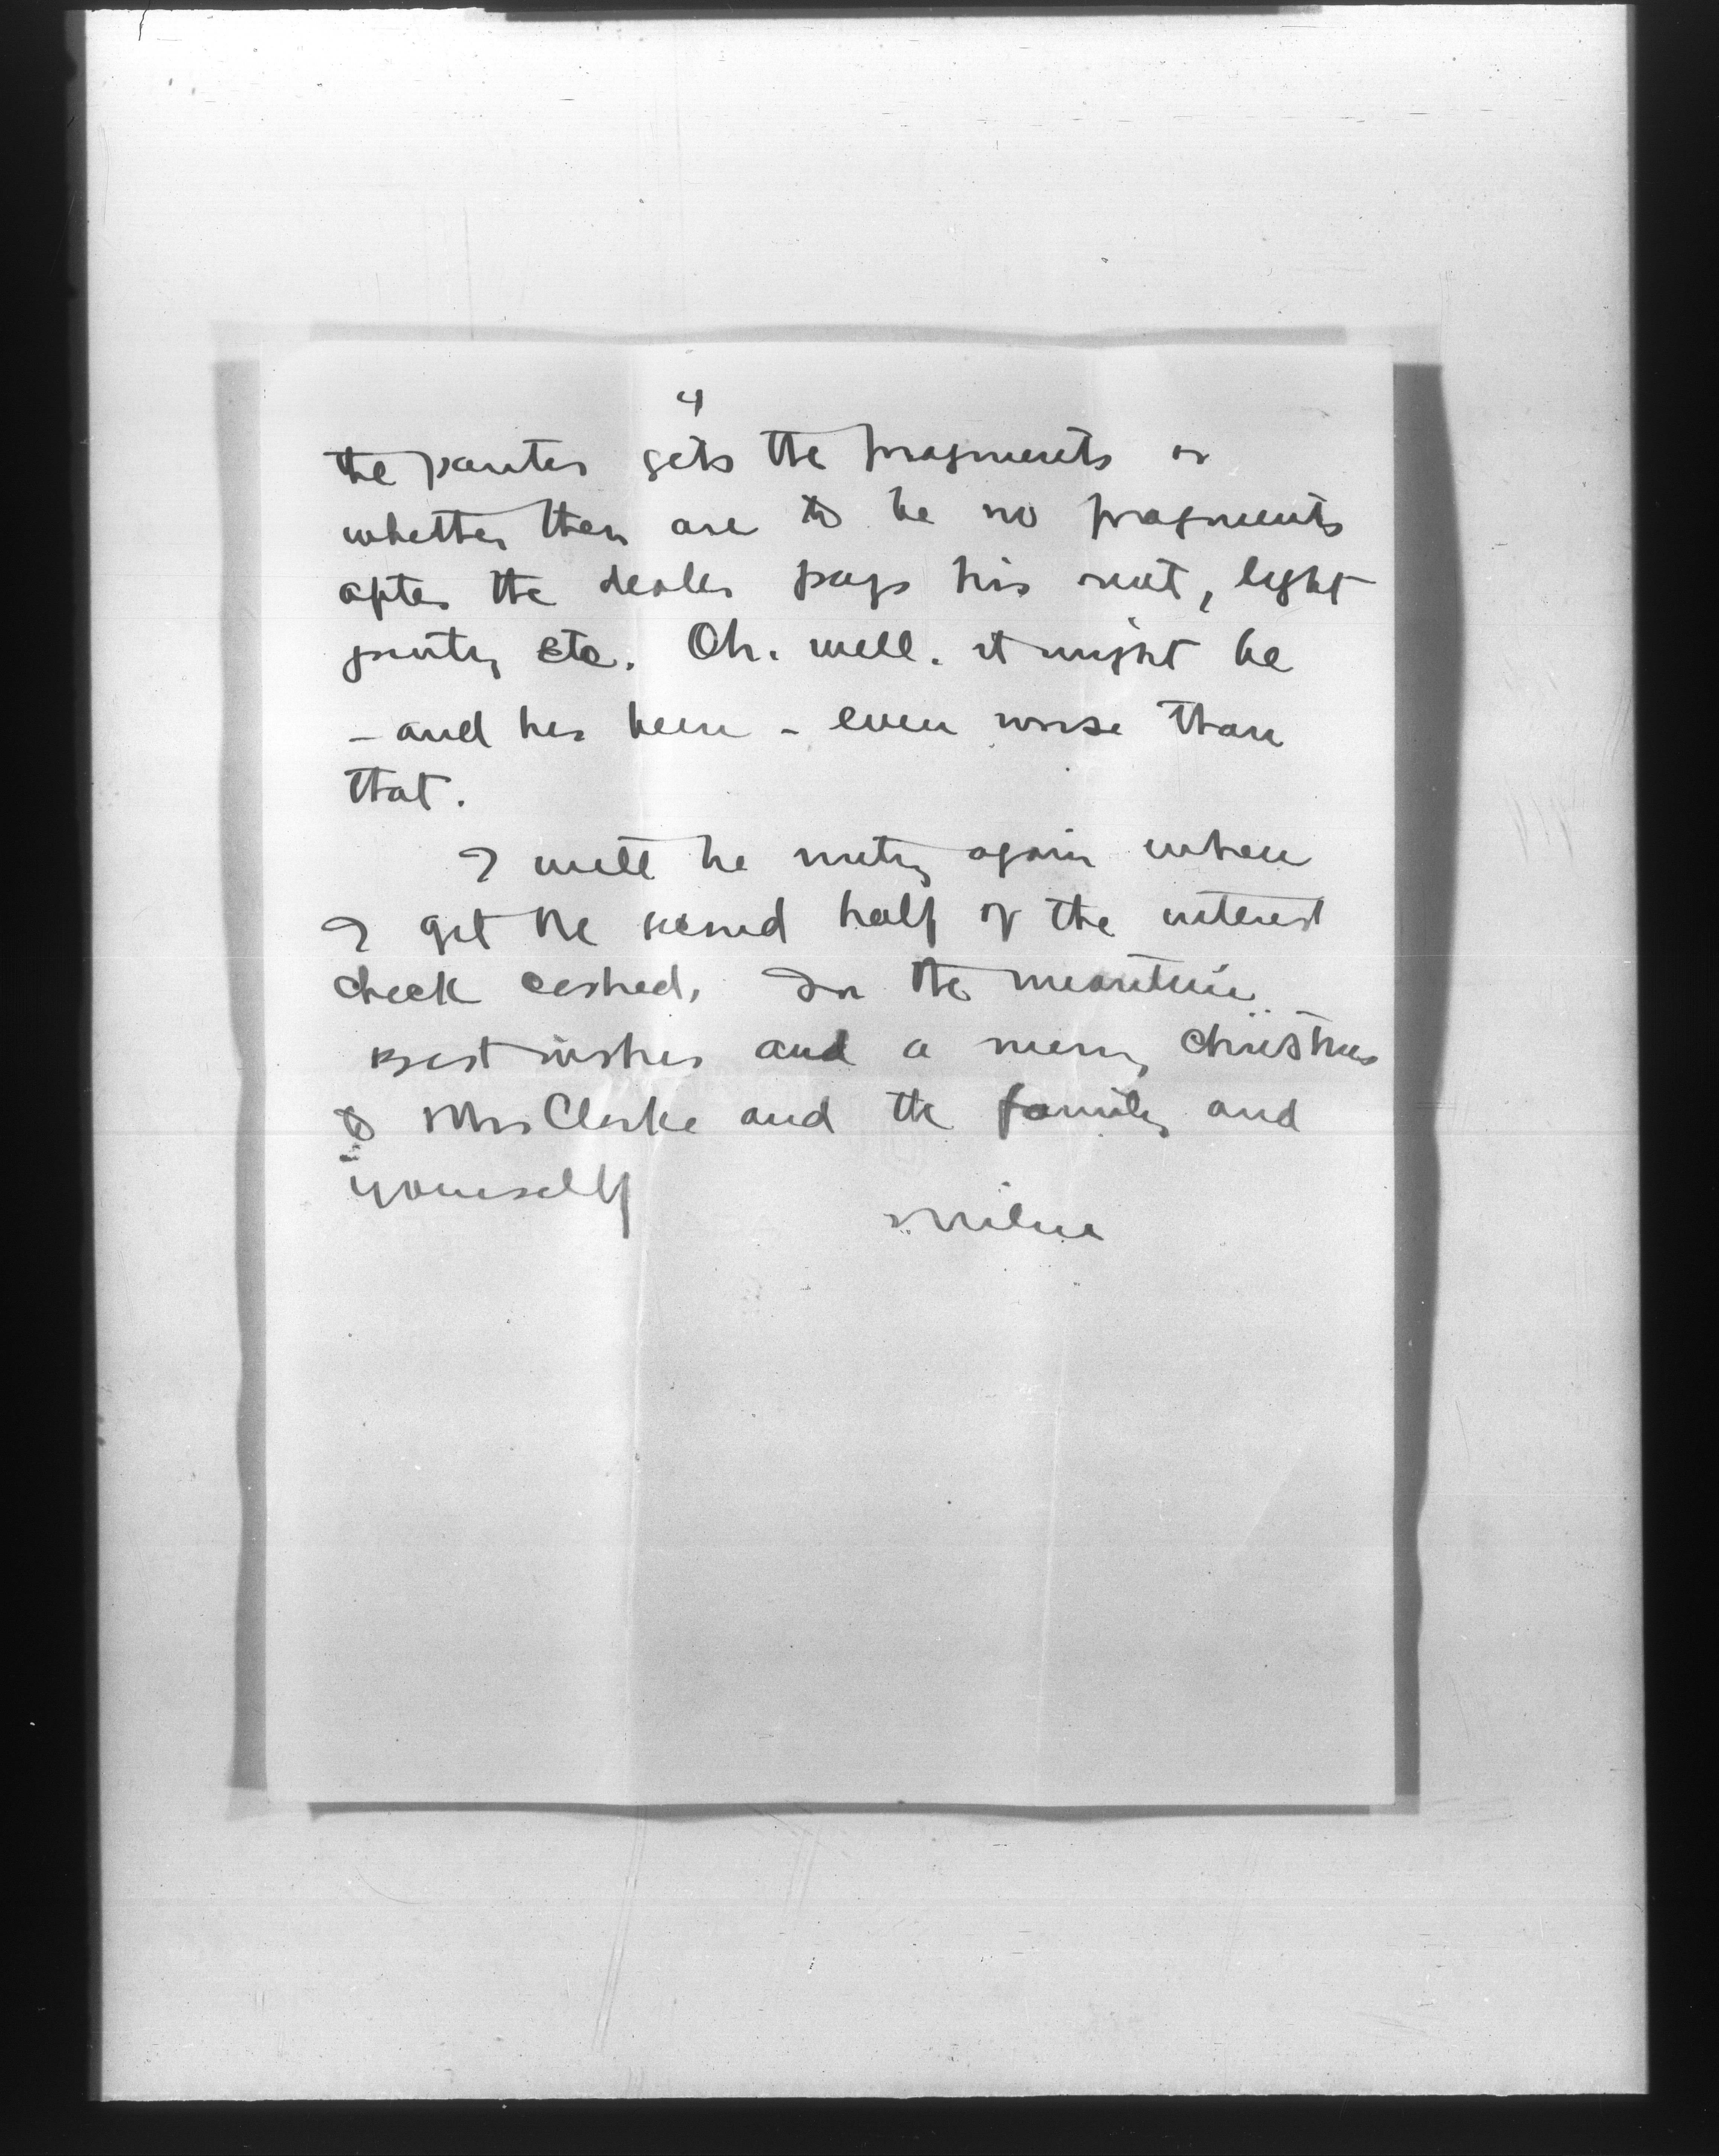 4
the painter gets the fragments or
whether there are to be no fragments
after the dealer pays his rent, light
printing etc. Oh. well. it might be
- and has been - even worse than
that.
I will be writing again when
I get the second half of the interest
check cashed. In the meantime
Best wishes and a merry Christmas
to Mrs Clarke and the family and
yourself
Milne